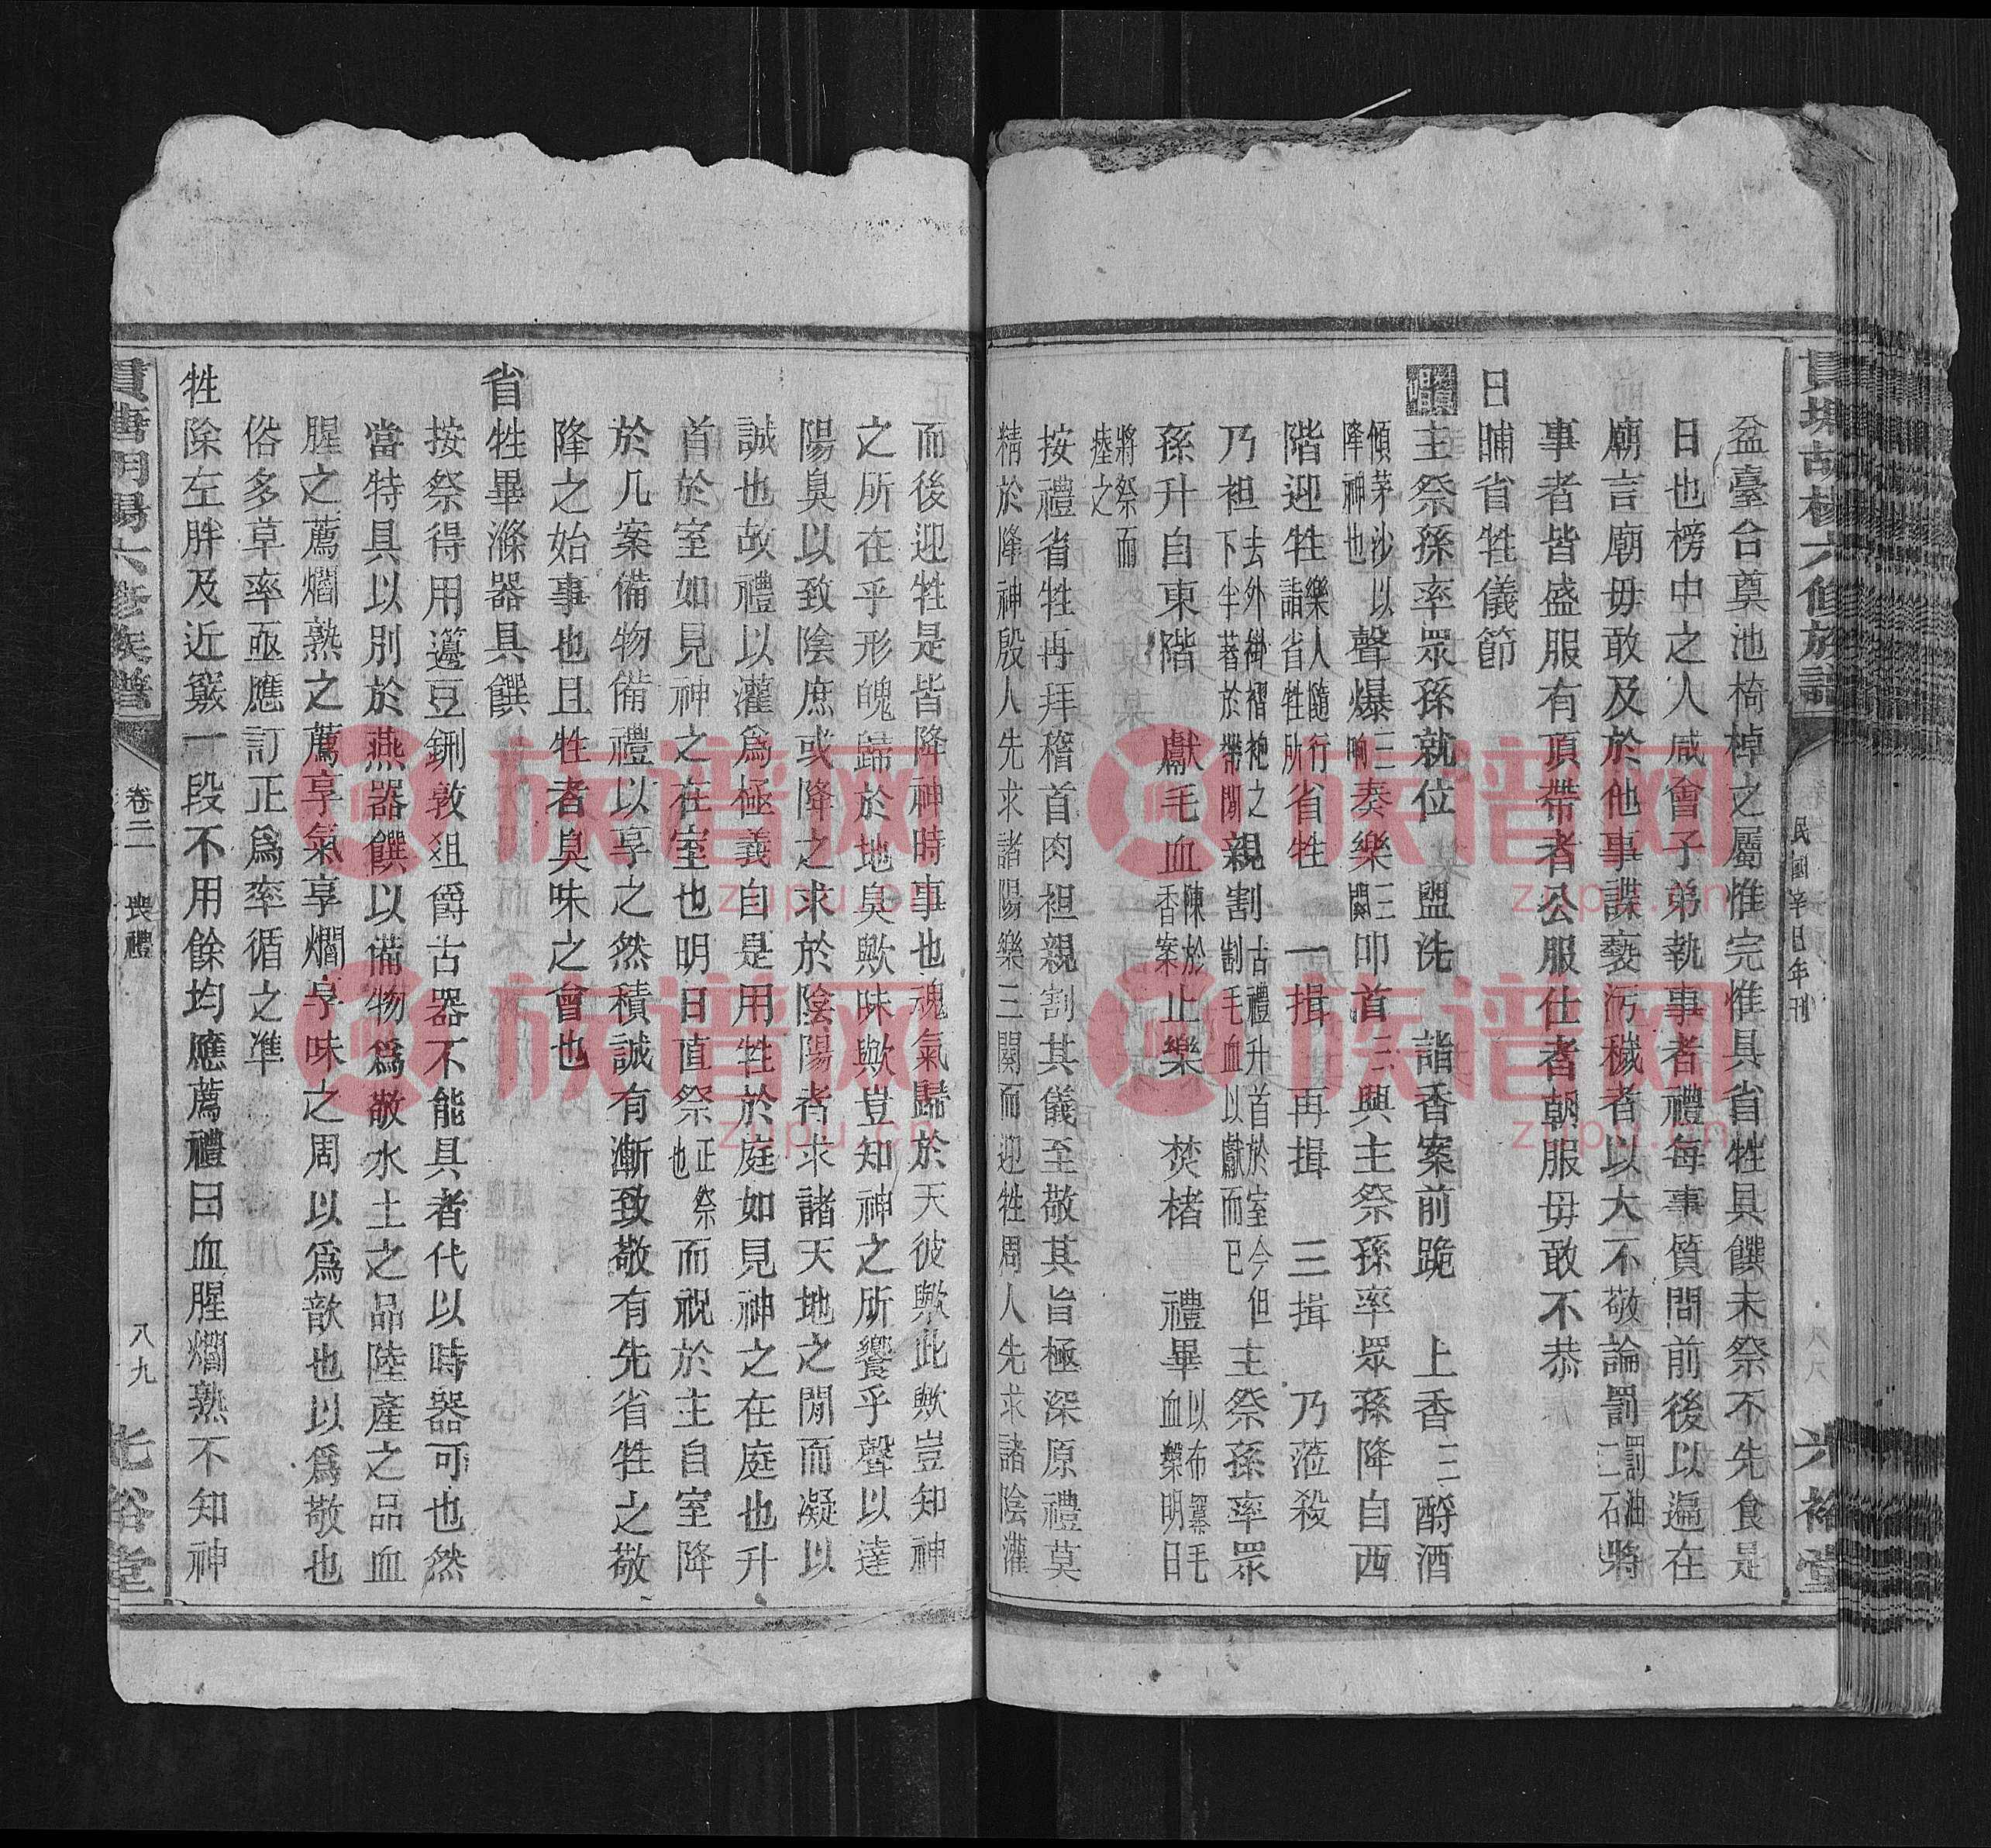 民國辛巳年刊
盆臺合奠池椅棹之屬惟完惟具省牲具饌未祭不先食是
日也榜中之人咸會子弟執事者禮每事質問前後以遍在
廟言廟毋敢及於他事諜褻污穢者以大不敬論罰罰油二石將
事者皆盛服有頂帶者公服仕者朝服毋敢不恭
日晡省牲儀節
主祭孫率眾孫就位 盥洗 詣香案前跪 上香三酹酒
傾茅沙以降神也聲爆三响奏樂三闋叩首三興主祭孫率眾孫降自西
階迎牲樂人隨行詣省牲所省牲 一揖 再揖 三揖 乃蒞殺
乃袒去外褂褶袍之下半著於帶間親割古禮升首於室今但割毛血以獻而已主祭孫率眾
孫升自東階 獻毛血陳於香案止樂 焚楮 禮畢以布冪毛血槃明日
將祭而瘞之
按禮省牲再拜稽首肉袒親割其儀至敬其旨極深原禮莫
精於降神殷人先求諸陽樂三闋而迎牲周人先求諸陰灌
而後迎牲是皆降神時事也魂氣歸於天彼歟此歟豈知神
之所在乎形魄歸於地臭歟味歟豈知神之所饗乎聲以達
陽臭以致陰庶或降之求於陰陽者求諸天地之間而凝以
誠也故禮以灌爲極義自是用牲於庭如見神之在庭也升
首於室如見神之在室也明日直祭正祭也而祝於主自室降
於几案備物備禮以享之然積誠有漸致敬有先省牲之敬
降之始事也且牲者臭味之會也
省牲畢滌器具饌
按祭得用籩豆鉶敦俎爵古器不能具者代以時器可也然
當特具以別於燕器饌以備物爲敬水土之品陸產之品血
腥之薦爓熟之薦享氣享爓享味之周以爲歆也以爲敬也
俗多草率亟應訂正爲率循之準
牲除左胖及近竅一段不用餘均應薦禮曰血腥爓熟不知神
卷二 喪禮
八九